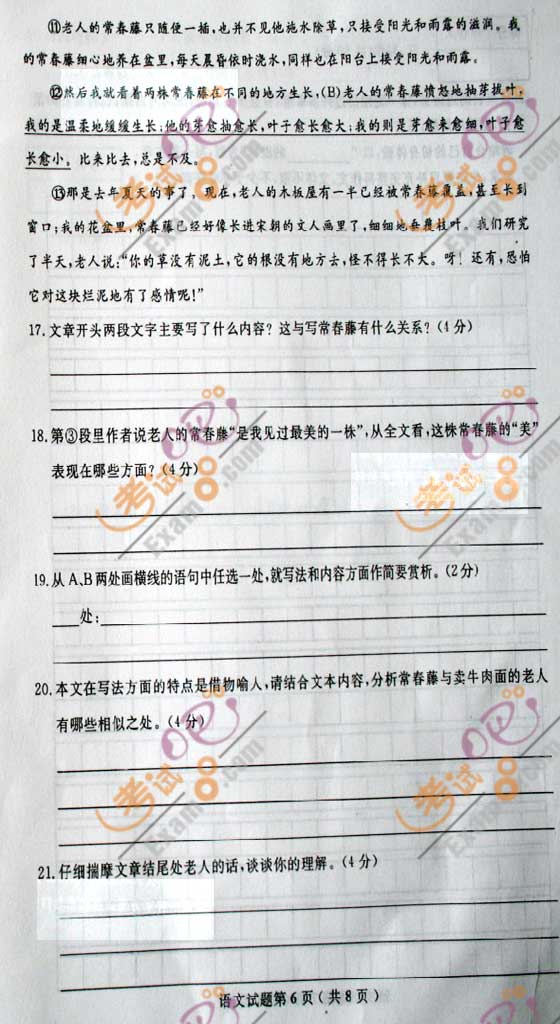 ⑪老人的常春藤只随便一插,也并不见他施水除草,只接受阳光和雨露的滋润。我
的常春藤细心地养在盆里,每天晨昏依时浇水,同样也在阳台上接受阳光和雨露。
⑫然后我就看着两株常春藤在不同的地方生长,(B)老人的常春藤愤怒地抽芽拔叶,
我的是温柔地缓缓生长;他的芽愈抽愈长,叶子愈长愈大;我的则是芽愈来愈细,叶子愈
长愈小。比来比去,总是不及。
⑬那是去年夏天的事了。现在,老人的木板屋有一半已经被常春藤覆盖,甚至长到
窗口;我的花盆里,常春藤已经好像长进宋朝的文人画里了,细细地垂覆枝叶。我们研究
了半天,老人说:“你的草没有泥土,它的根没有地方去,怪不得长不大。呀!还有,恐怕
它对这块烂泥地有了感情呢!”
17.文章开头两段文字主要写了什么内容?这与写常春藤有什么关系?(4分)
18.第③段里作者说老人的常春藤“是我见过最美的一株”,从全文看,这株常春藤的“美”
表现在哪些方面?(4分)
19.从A、B两处画横线的语句中任选一处,就写法和内容方面作简要赏析。(2分)
____处:
20.本文在写法方面的特点是借物喻人,请结合文本内容,分析常春藤与卖牛肉面的老人
有哪些相似之处。(4分)
21.仔细揣摩文章结尾处老人的话,谈谈你的理解。(4分)
语文试题第6页(共8页)
考试
Exam8.com
考试
Exam8.com
考试
Exam8.com
考试
Exam8.com
考试
Exam8.com
考试
Exam8.com